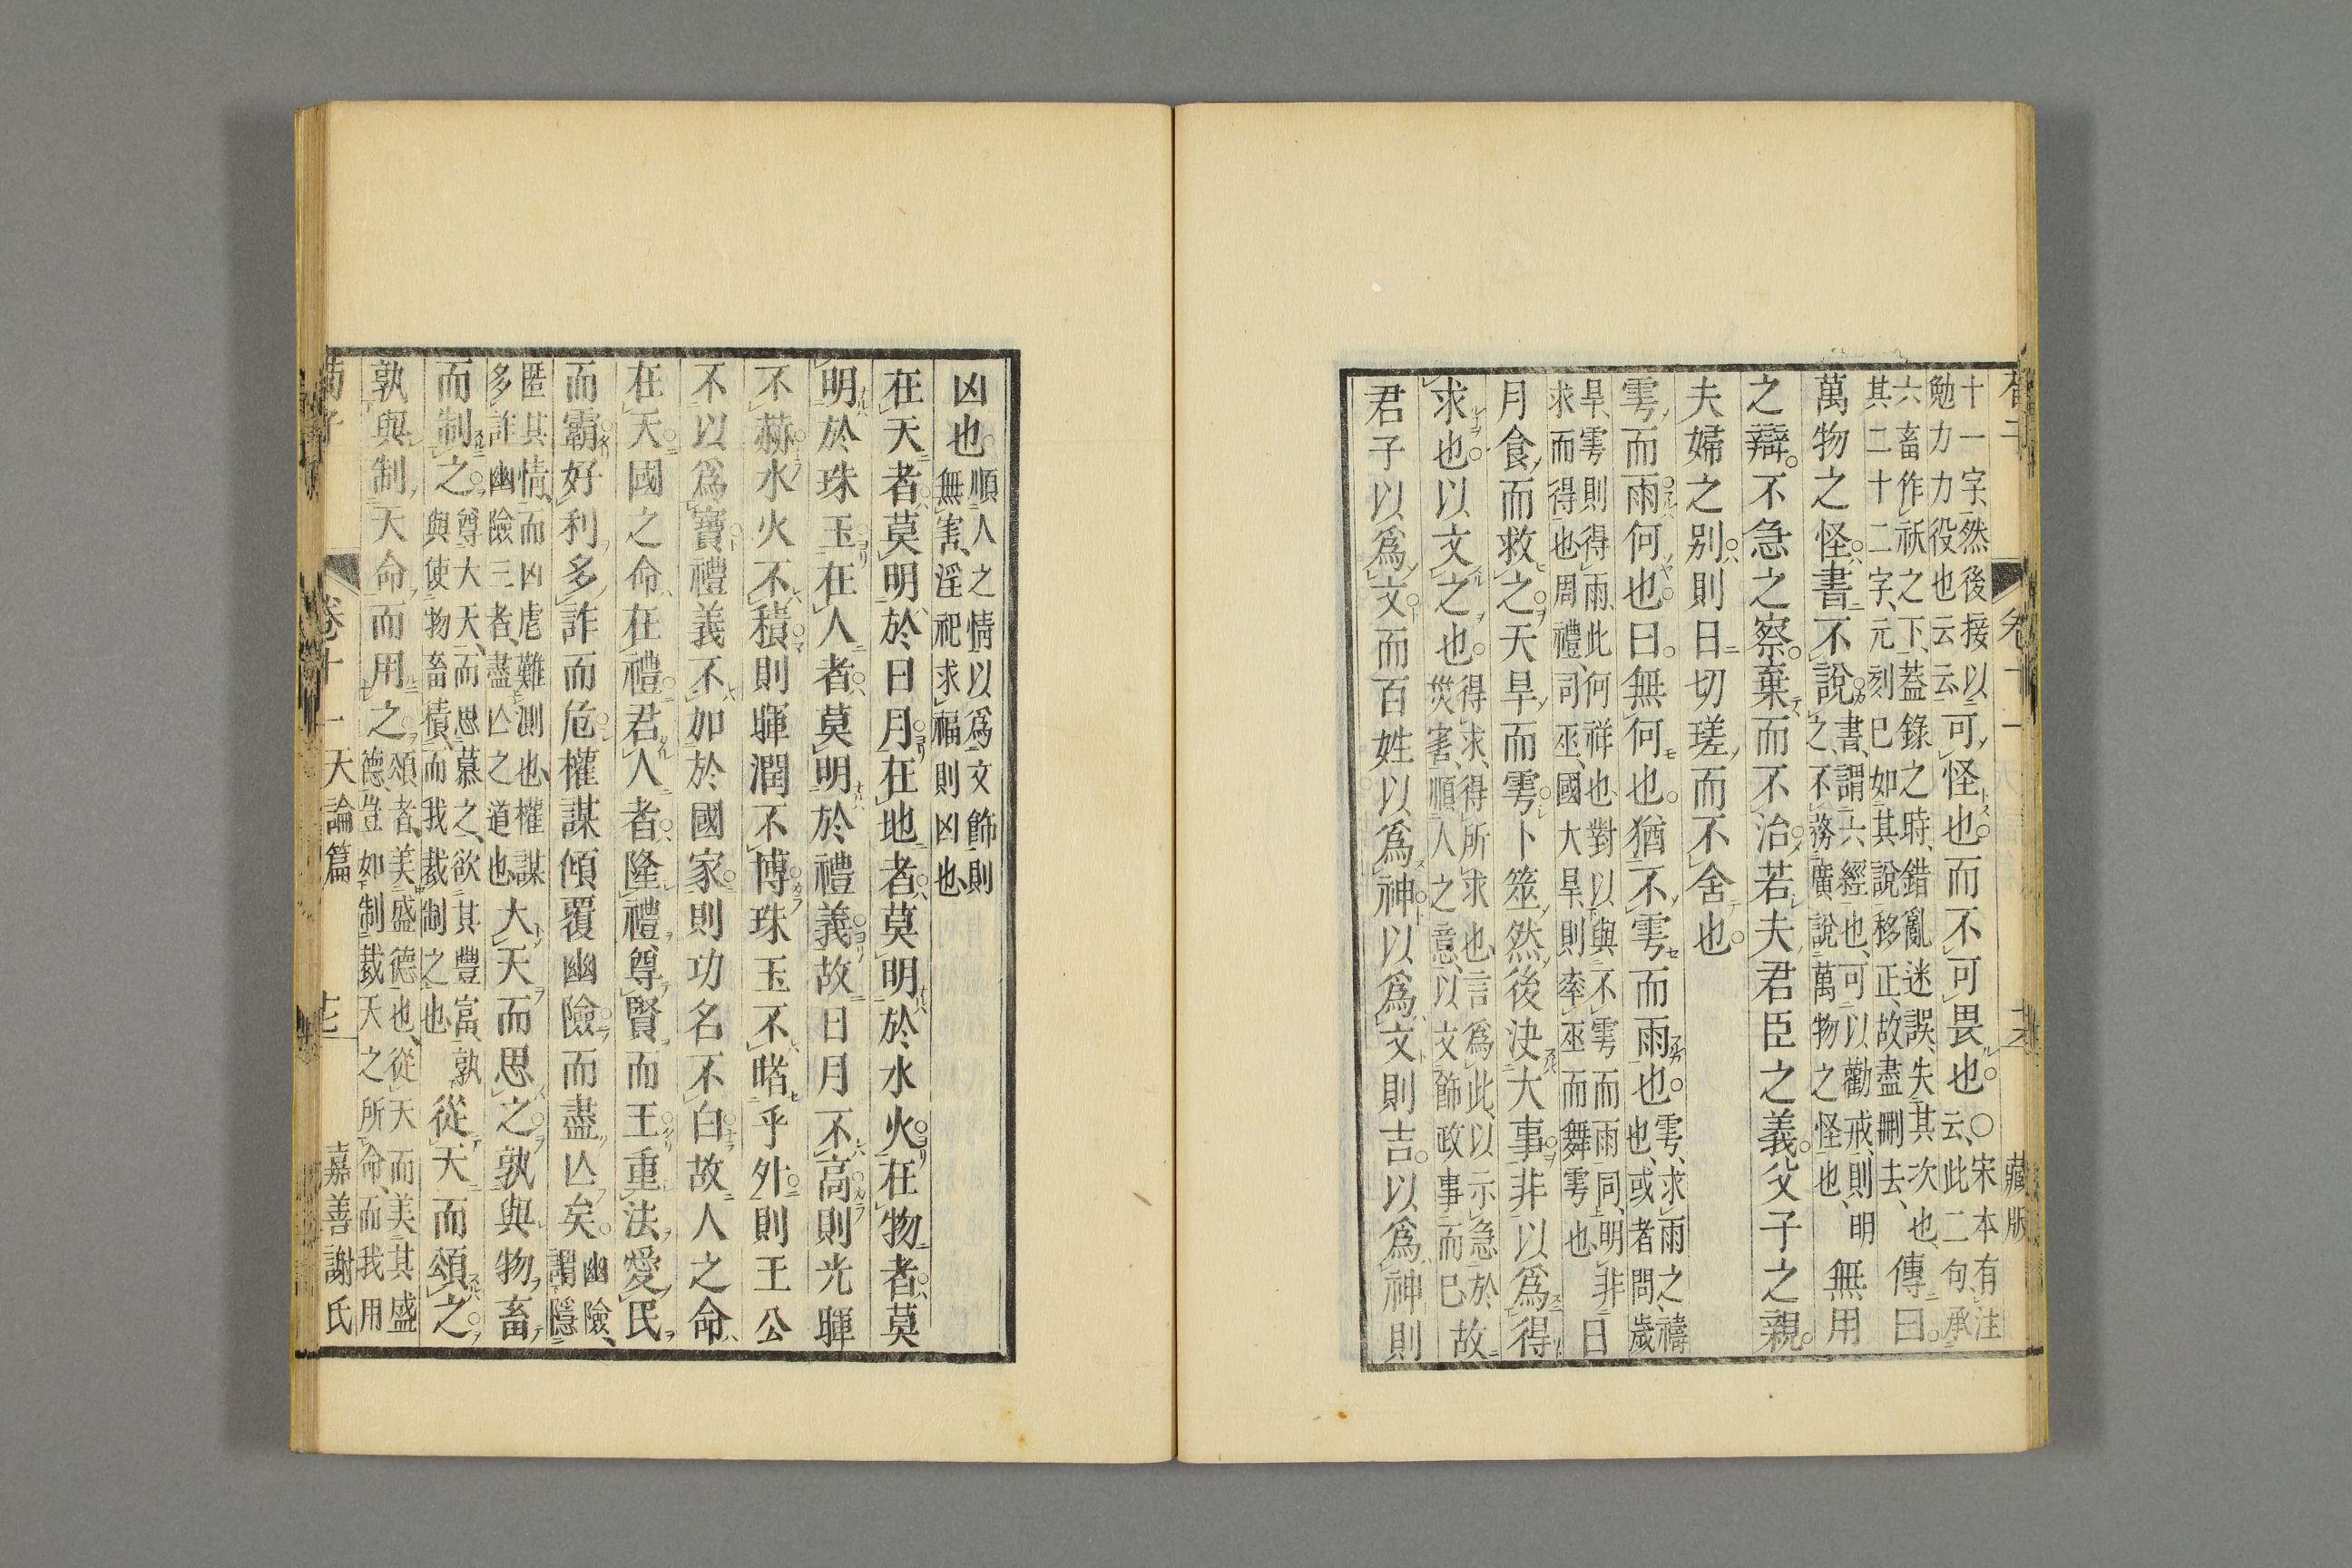 十一字、然後接以
勉力力役也云云
可怪也而不可畏也。
○宋本有注
云、此二句、承
六畜作祅之下、蓋錄之時、錯亂迷誤、失其次也、
其二十二字、元刻已如其說移正、故盡刪去、
傳曰。
萬物之怪書不說
書、謂六經也、可以勸戒、則明
之、不務廣說萬物之怪也、
無用
之辯。不急之察。棄而不治若夫君臣之義。父子之親。
夫婦之別則日切瑳而不舍也。
雩而雨何也。曰。無何也。猶不雩而雨也。
雩、求雨之禱
也、或者問歲
旱、雩則得雨、此何祥也、對以與不雩而雨同、明非
求而得也、周禮、司巫、國大旱、則率巫而舞雩也、
日
月食而救之天旱而雩卜筮然後決大事非以爲得
求也。以文之也。
得求、得所求也、言爲此以示急於
災害、順人之意、以文飾政事而已
故
君子以爲文而百姓以爲神以爲文則吉。以爲神則
藏版
凶也。
順人之情以爲文飾則
無害、淫祀求福則凶也、
在天者莫明於日月在地者莫明於水火在物者莫
明於珠玉在人者莫明於禮義故日月不高則光暉
不赫水火不積則暉潤不博珠玉不睹乎外則王公
不以爲寶禮義不如於國家則功名不白故人之命
在天國之命在禮君人者隆禮尊賢而王重法愛民
而霸好利多詐而危權謀傾覆幽險而盡亾矣。
幽險、
謂隱
匿其情、而凶虐難測也、權謀
多詐幽險三者、盡亾之道也、
大天而思之孰與物畜
而制之
尊大天、而思慕之、欲其豐富、孰
與使物畜積、而我裁制之也、
從天而頌之
孰與制天命而用之
頌者、美盛德也、從天而美其盛
德、豈如制裁天之所命、而我用
荀子
卷十一
天論篇
十二
嘉善謝氏